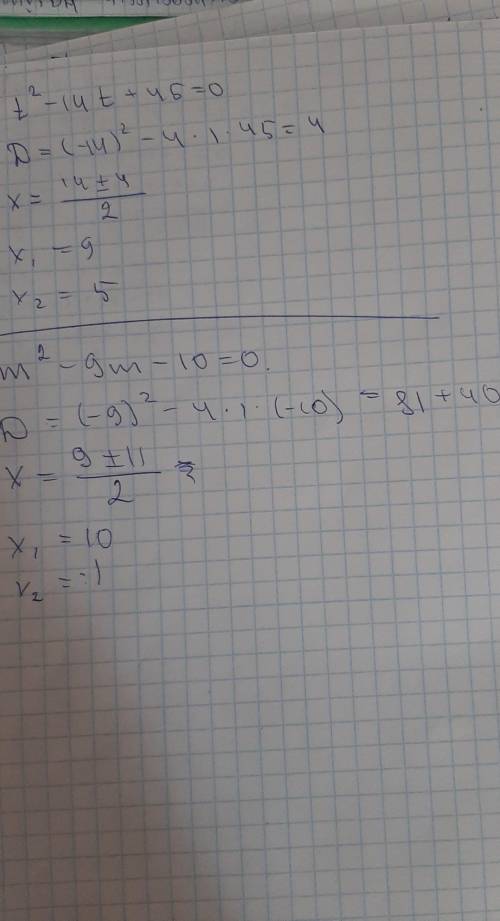 t² - 14t + 45 = 0
D = (-14)² - 4 · 1 · 45 = 4
x = (14 ± 4)/2
x₁ = 9
x₂ = 5
m² - 9m - 10 = 0.
D = (-9)² - 4 · 1 · (-10) = 81 + 40
x = (9 ± 11)/2 =
x₁ = 10
x₂ = -1